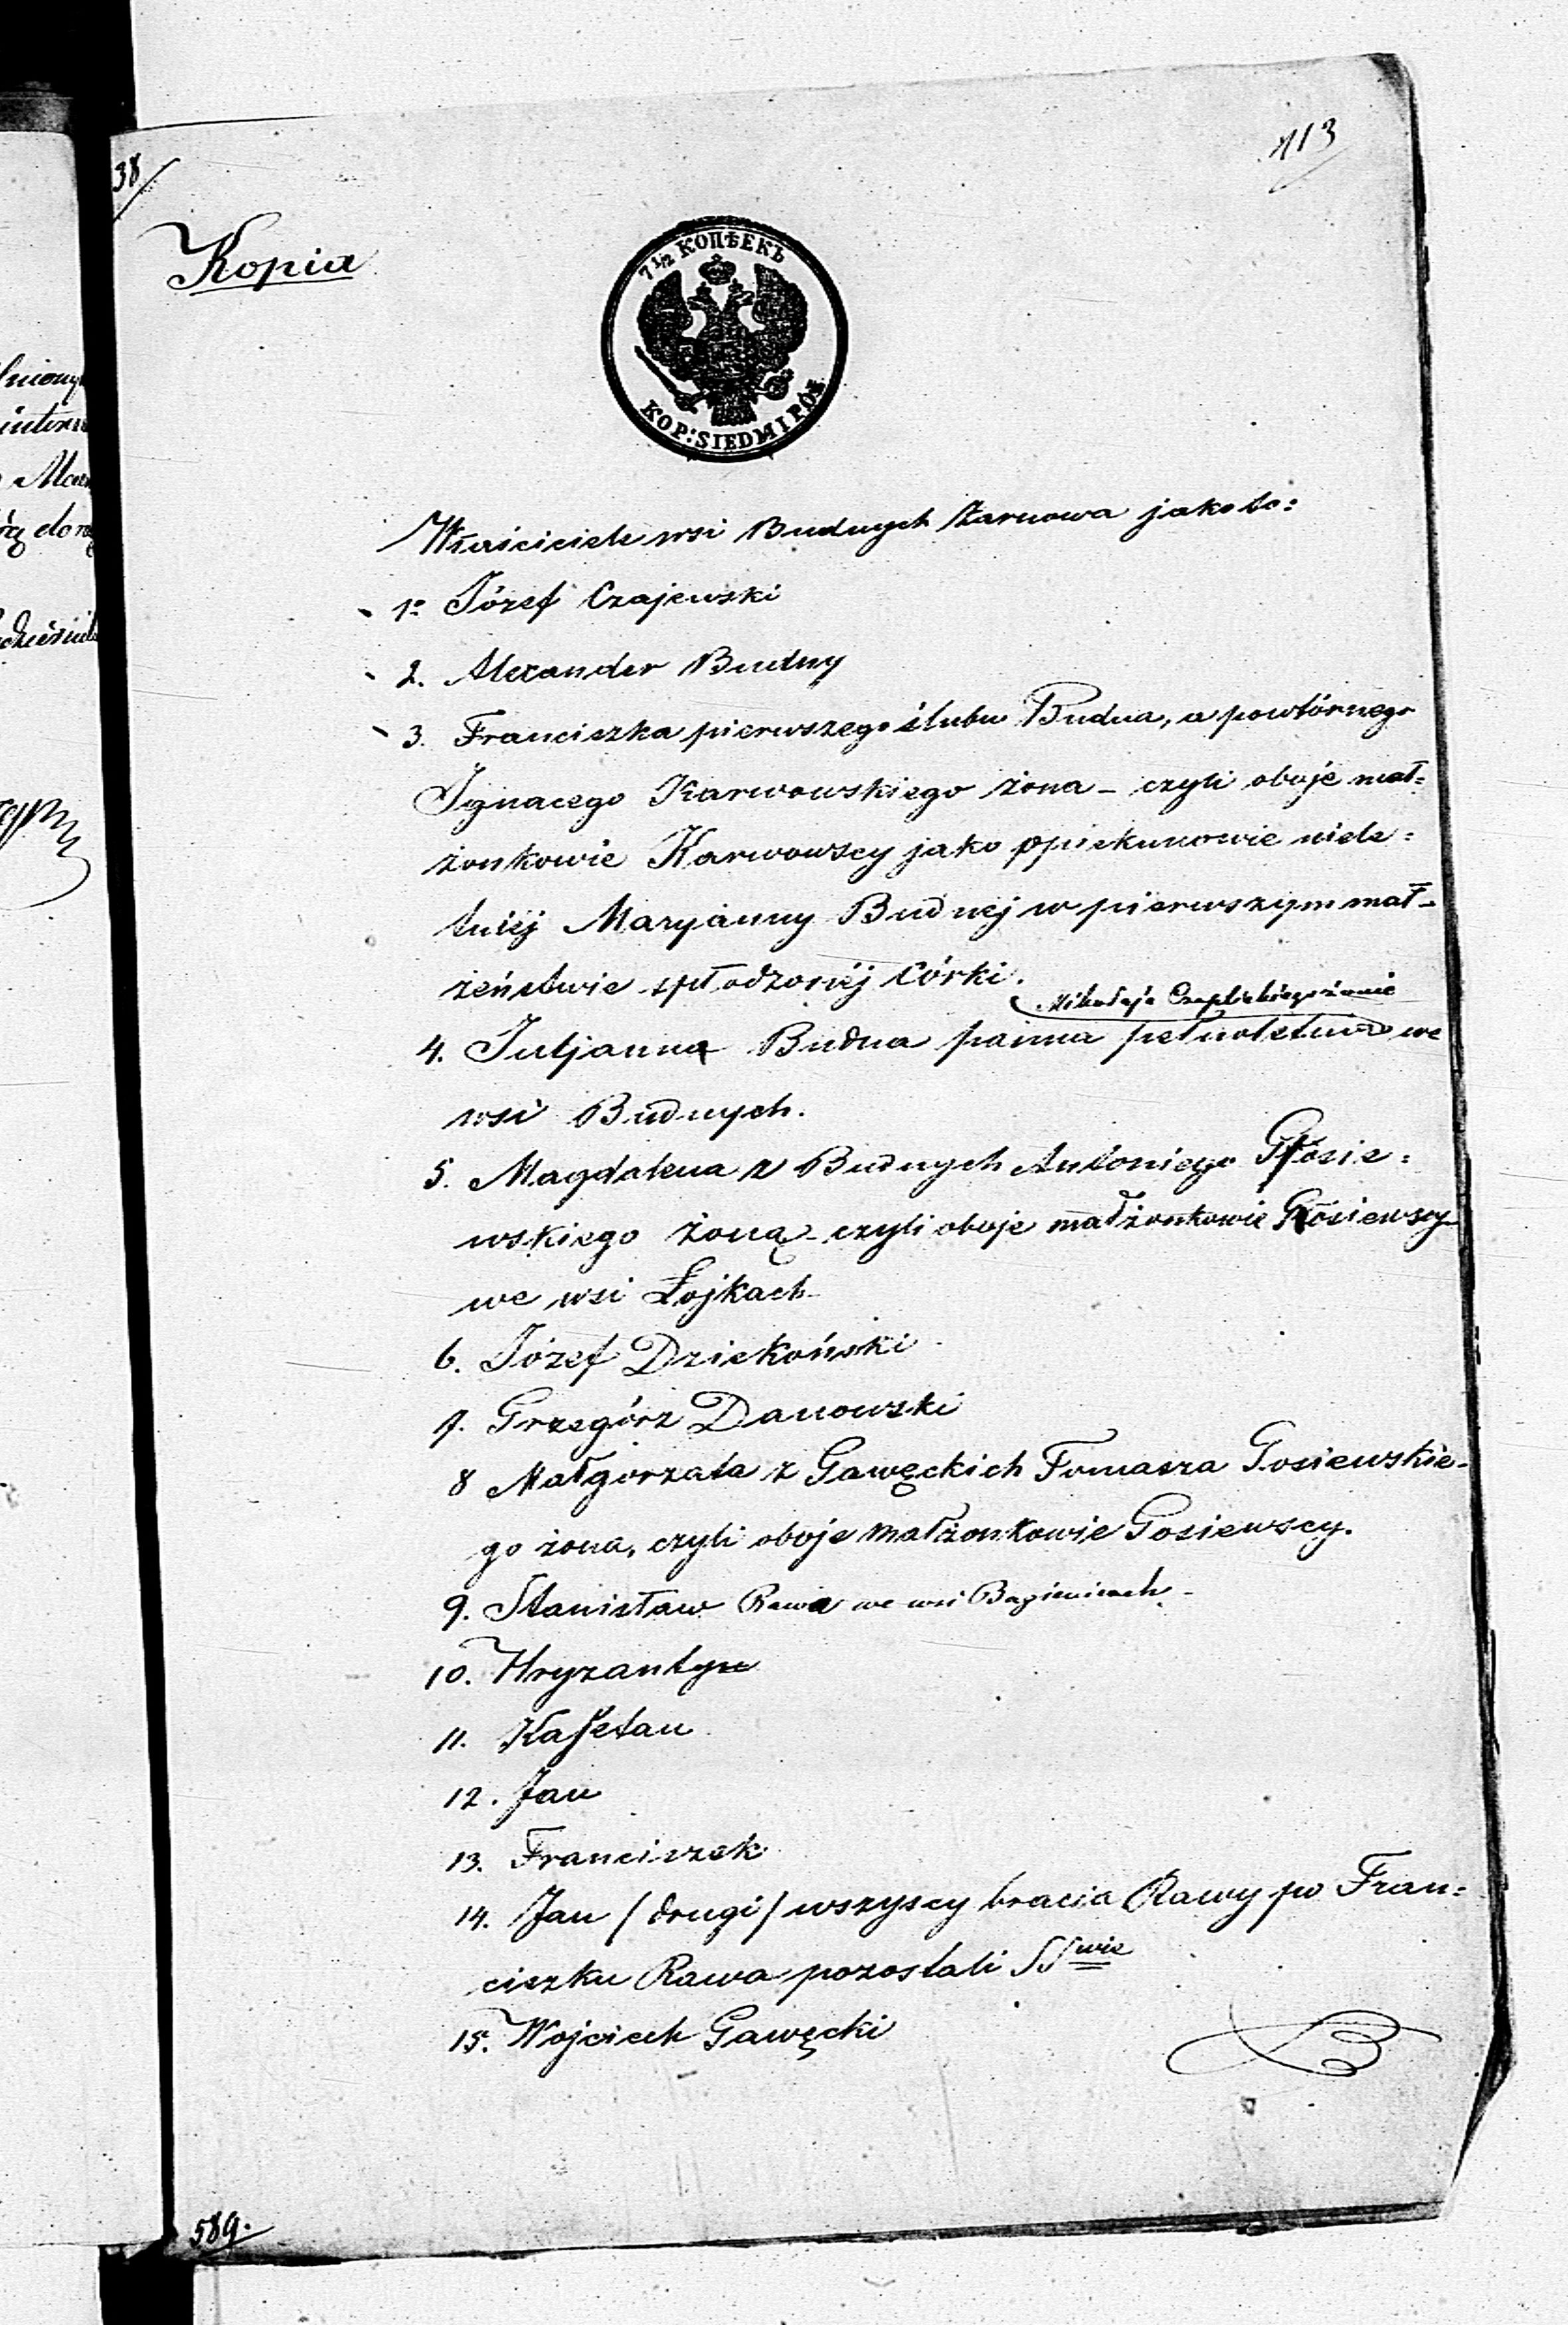 113
38/
Kopia
7 1/2 КОПѢЕКЪ
KOP: SIEDM I PÓŁ
Właściciele wsi Budnych Żarnowa jako to:
1o Józef Czajewski
2. Alexander Budny
3. Franciszka pierwszego ślubu Budna, a powtórnego
Ignacego Karwowskiego żona – czyli oboje mał=
żonkowie Karwowscy jako opiekunowie niele=
tniéj Maryanny Budnej w pierwszym mał-
żeństwie spłodzonéj Córki.
Mikołaja Czaplickiego żonie
4. Juljanna Budna panna pełnoletnia we
wsi Budnych.
5. Magdalena z Budnych Antoniego Gosie=
wskiego żoną – czyli oboje małżonkowie Gosiewscy
we wsi Łojkach
6. Józef Dziekoński
7. Grzegórz Danowski
8 Małgorzata z Gawęckich Tomasza Gosiewskie-
go żona, czyli oboje małżonkowie Gosiewscy.
9. Stanisław Rawa we wsi
10. Hryzanty
11. Kajetan
12. Jan
13. Franciszek
14. Jan / drugi / wszyscy bracia Rawy po Fran=
ciszku Rawa pozostali SSwie
15. Wojciech Gawęcki
589.